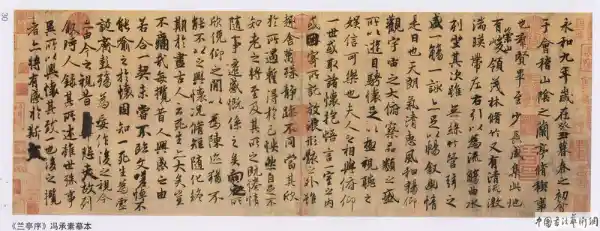 永和九年歲在癸丑暮春之初會
于會稽山陰之蘭亭脩稧事
也羣賢畢至少長咸集此地
有崇山峻領茂林脩竹又有清流激
湍暎帶左右引以為流觴曲水
列坐其次雖無絲竹管弦之
盛一觴一詠亦足以暢敘幽情
是日也天朗氣清惠風和暢仰
觀宇宙之大俯察品類之盛
所以遊目騁懷足以極視聽之
娛信可樂也夫人之相與俯仰
一世或取諸懷抱悟言一室之內
或因寄所託放浪形骸之外雖
趣舍萬殊靜躁不同當其欣
於所遇蹔得於己怏然自足不
知老之將至及其所之既惓情
隨事遷感慨係之矣向之所
欣俛仰之閒以為陳迹猶不
能不以之興懷況脩短隨化終
期於盡古人云死生亦大矣豈
不痛哉每攬昔人興感之由
若合一契未嘗不臨文嗟悼不
能喻之於懷固知一死生為虛
誕齊彭殤為妄作後之視今
亦由今之視昔悲夫故列
敘時人錄其所述雖世殊事
異所以興懷其致一也後之攬
者亦將有感於斯文
《兰亭序》冯承素摹本
中国书法艺术网